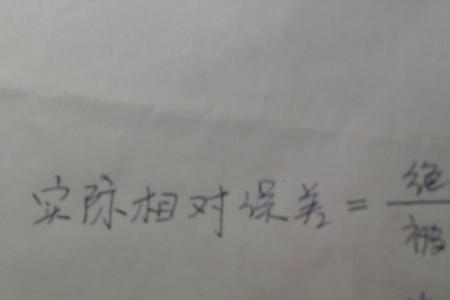 实际相对误差 = 绝
被